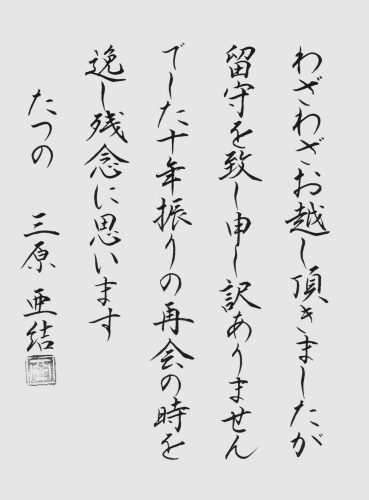 わざわざお越し頂きましたが
留守を致し申し訳ありません
でした十年振りの再会の時を
逸し残念に思います
たつの 三原 亜結